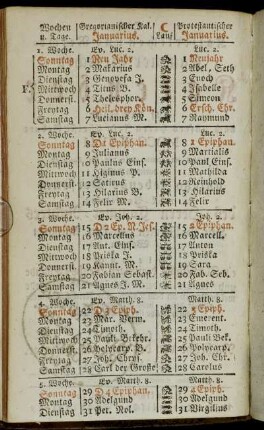 Wochen Gregorianischer Kal. C Protestantischer
u. Tage. Januarius. Lauf Januarius.
1. Woche. Ev. Luc. 2. Luc. 2.
Sonntag 1 Neu Jahr 1 Neujahr
Montag 2 Makarius 2 Abel, Seth
Dienstag 3 Genovefa J. 3 Enoch
Mittwoch 4 Titus B. 4 Isabelle
Donnerst. 5 Thelesphor. 5 Simeon
Freytag 6 Heil. drey Kön. 6 Ersch. Chr.
Samstag 7 Lucianus M. 7 Raymund
2. Woche. Ev. Luc. 2. Luc. 2.
Sonntag 8 D1 Epiphan. 8 1 Epiphan.
Montag 9 Julianus 9 Martialis
Dienstag 10 Paulus Einf. 10 Paul Einf.
Mittwoch 11 Higinus P. 11 Mathilda
Donnerst. 12 Satirus 12 Reinhold
Freytag 13 Hilarius B. 13 Hilarius
Samstag 14 Felix M. 14 Felix
3. Woche. Ev. Joh. 2. Joh. 2.
Sonntag 15 D2 Ep. N. Jes. 15 2 Epiphan.
Montag 16 Marcellus 16 Marcell.
Dienstag 17 Ant. Einf. 17 Anton
Mittwoch 18 Priska J. 18 Priska
Donnerst. 19 Kanut. M. 19 Sara
Freytag 20 Fabian Sebast. 20 Fab. Seb.
Samstag 21 Agnes J. M. 21 Agnes
4. Woche. Ev. Matth. 8. Matth. 8.
Sonntag 22 D3 Epiph. 22 3 Epiph.
Montag 23 Mar. Verm. 23 Emerent.
Dienstag 24 Timoth. 24 Timoth.
Mittwoch 25 Pauli Bekehr. 25 Pauli Bek.
Donnerst. 26 Polycarp. B. 26 Polycarp.
Freytag 27 Joh. Chrys. 27 Joh. Chr.
Samstag 28 Carl der Große 28 Carolus
5. Woche. Ev. Matth. 8. Matth. 8.
Sonntag 29 D4 Epiphan. 29 4 Epiph.
Montag 30 Adelgund 30 Adelgund
Dienstag 31 Pet. Nol. 31 Virgilius